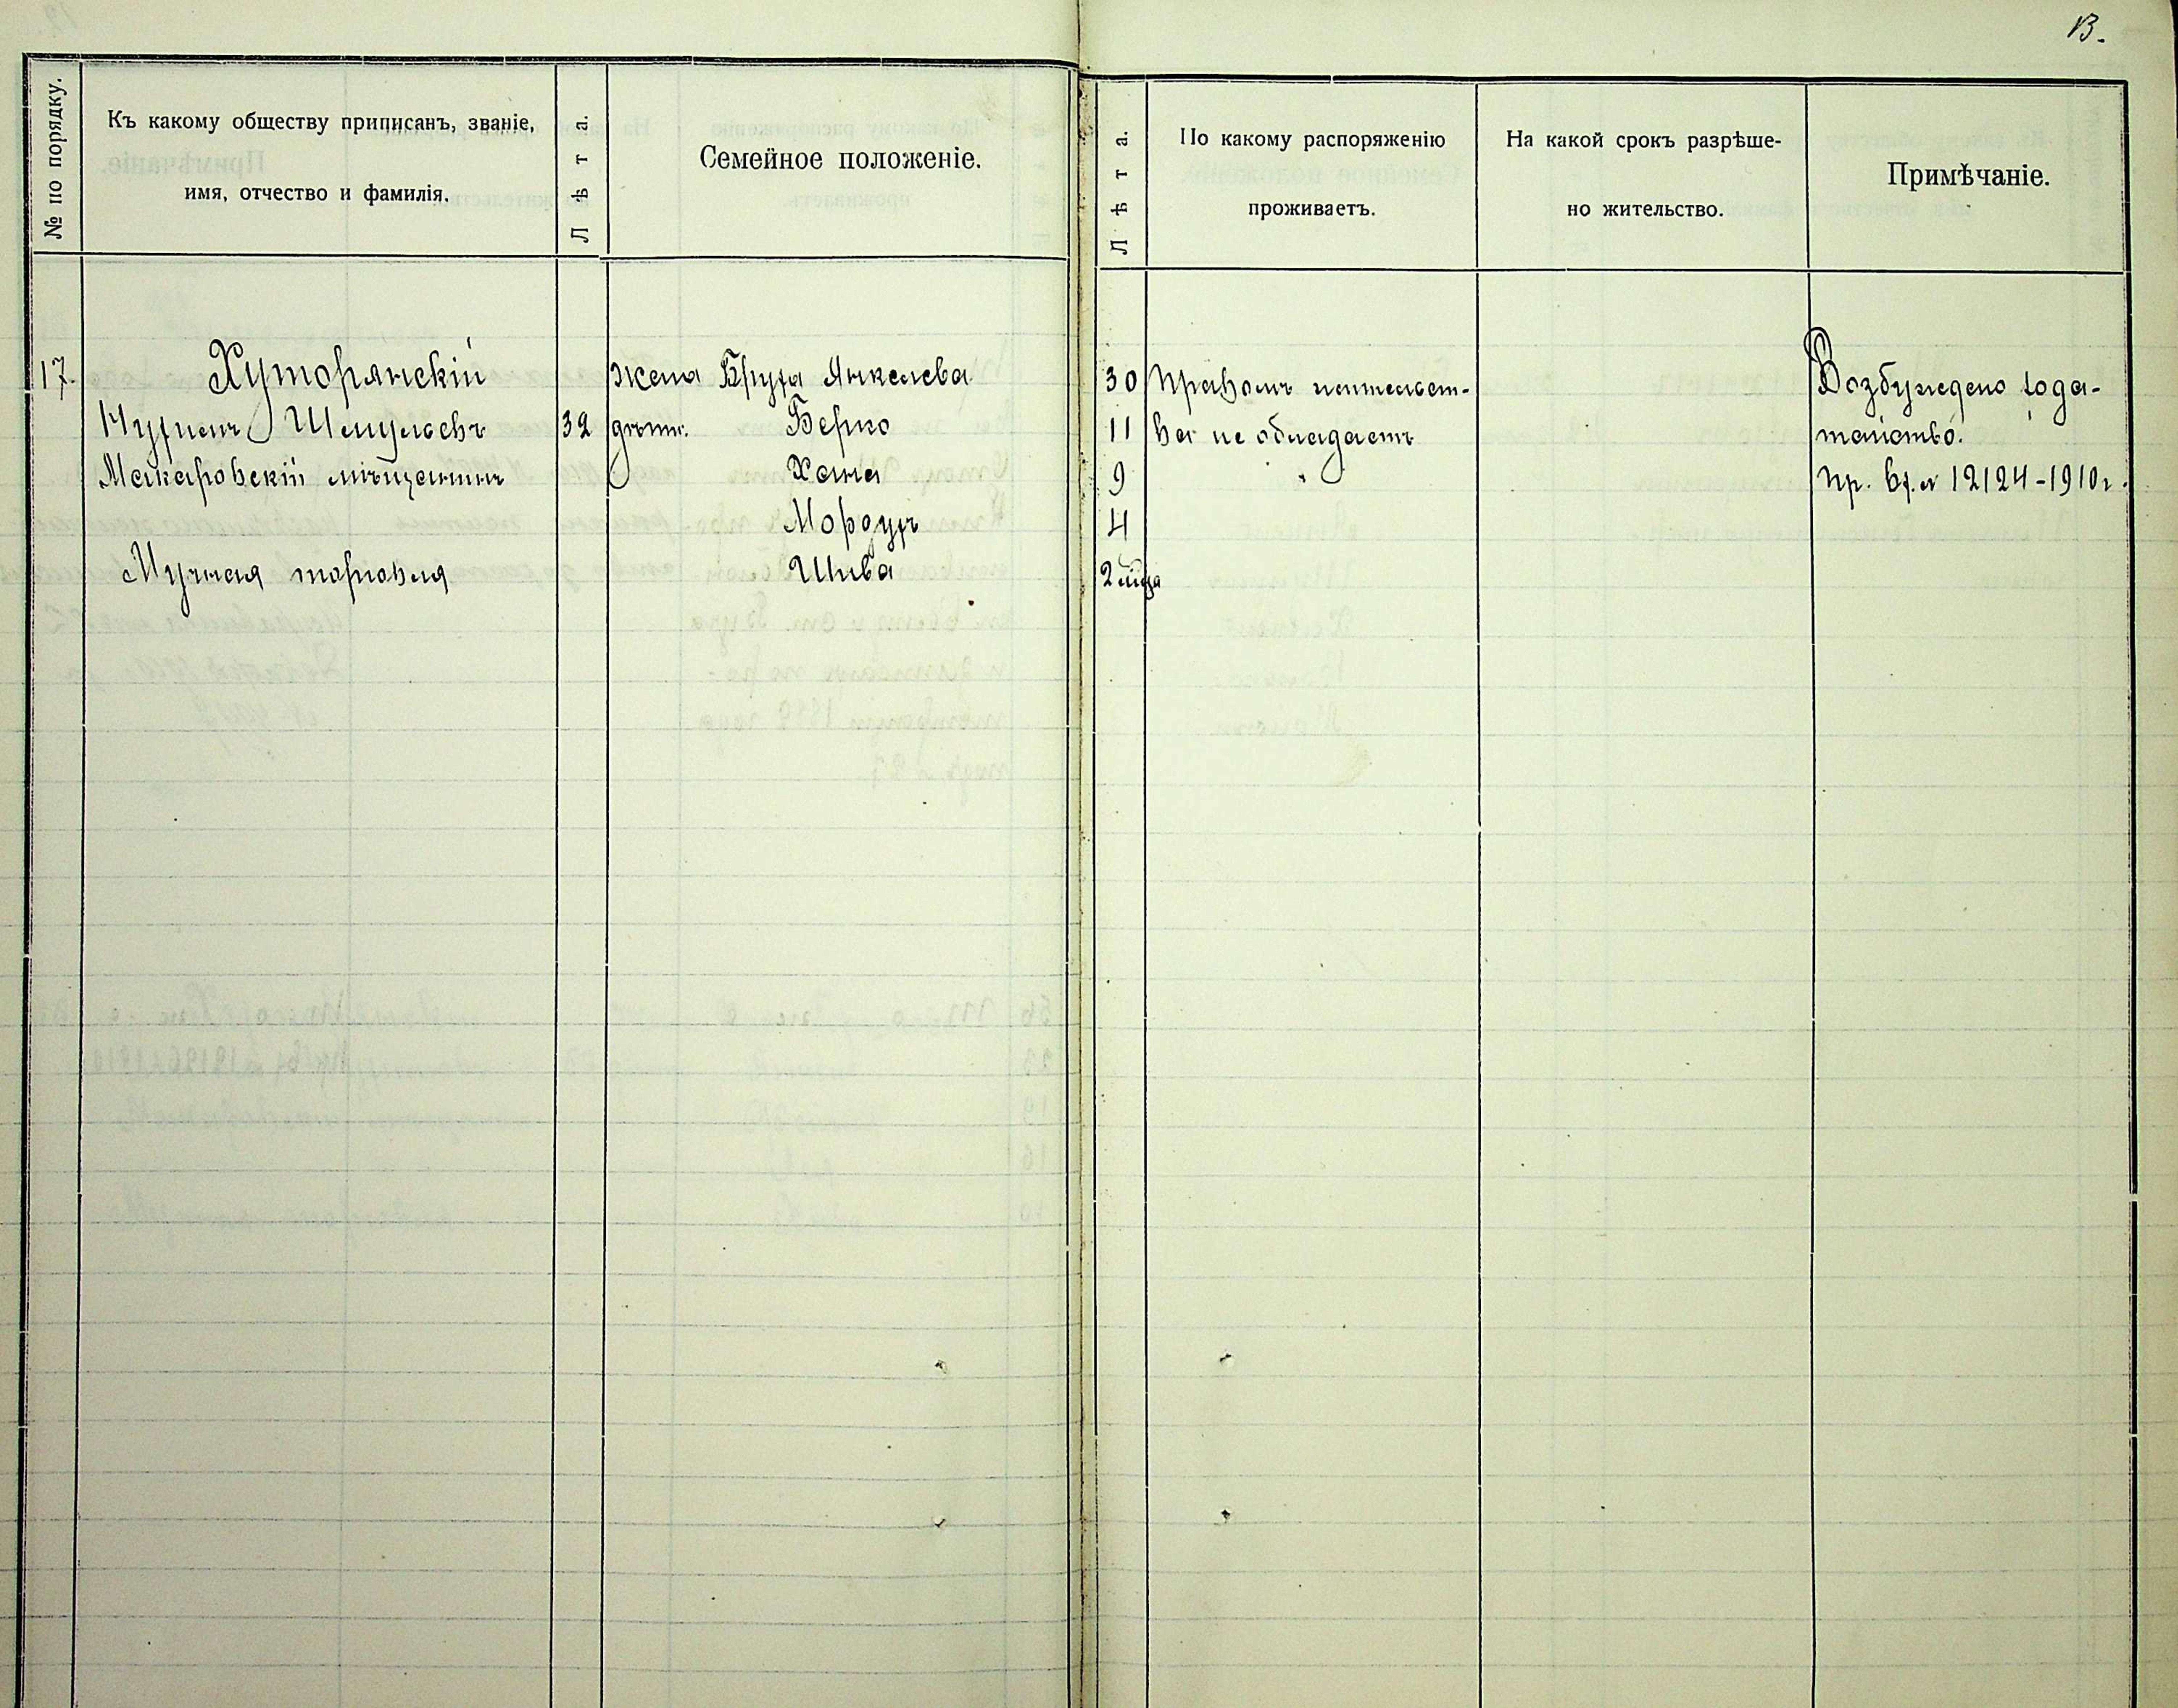 13.
№ по порядку.
Къ какому обществу приписанъ, званіе,
имя, отчество и фамилія.
Лѣта.
Семейное положеніе.
Лѣта.
По какому распоряженію
проживаетъ.
На какой срокъ разрѣше-
но жительство.
Примѣчаніе.
17. Хуторянскій жена Бруха Янкелева 30 Правомъ жительст- Возбуждено хода-
Нухимъ Шмулевъ 32 дѣти. Берко 11 ва не обладаетъ тайство.
Макаровскій мѣщанинъ Хана 9 Пр. вх. № 12124-1910 г.
Мордухъ 4
Мучная торговля Шива 2 м-ца